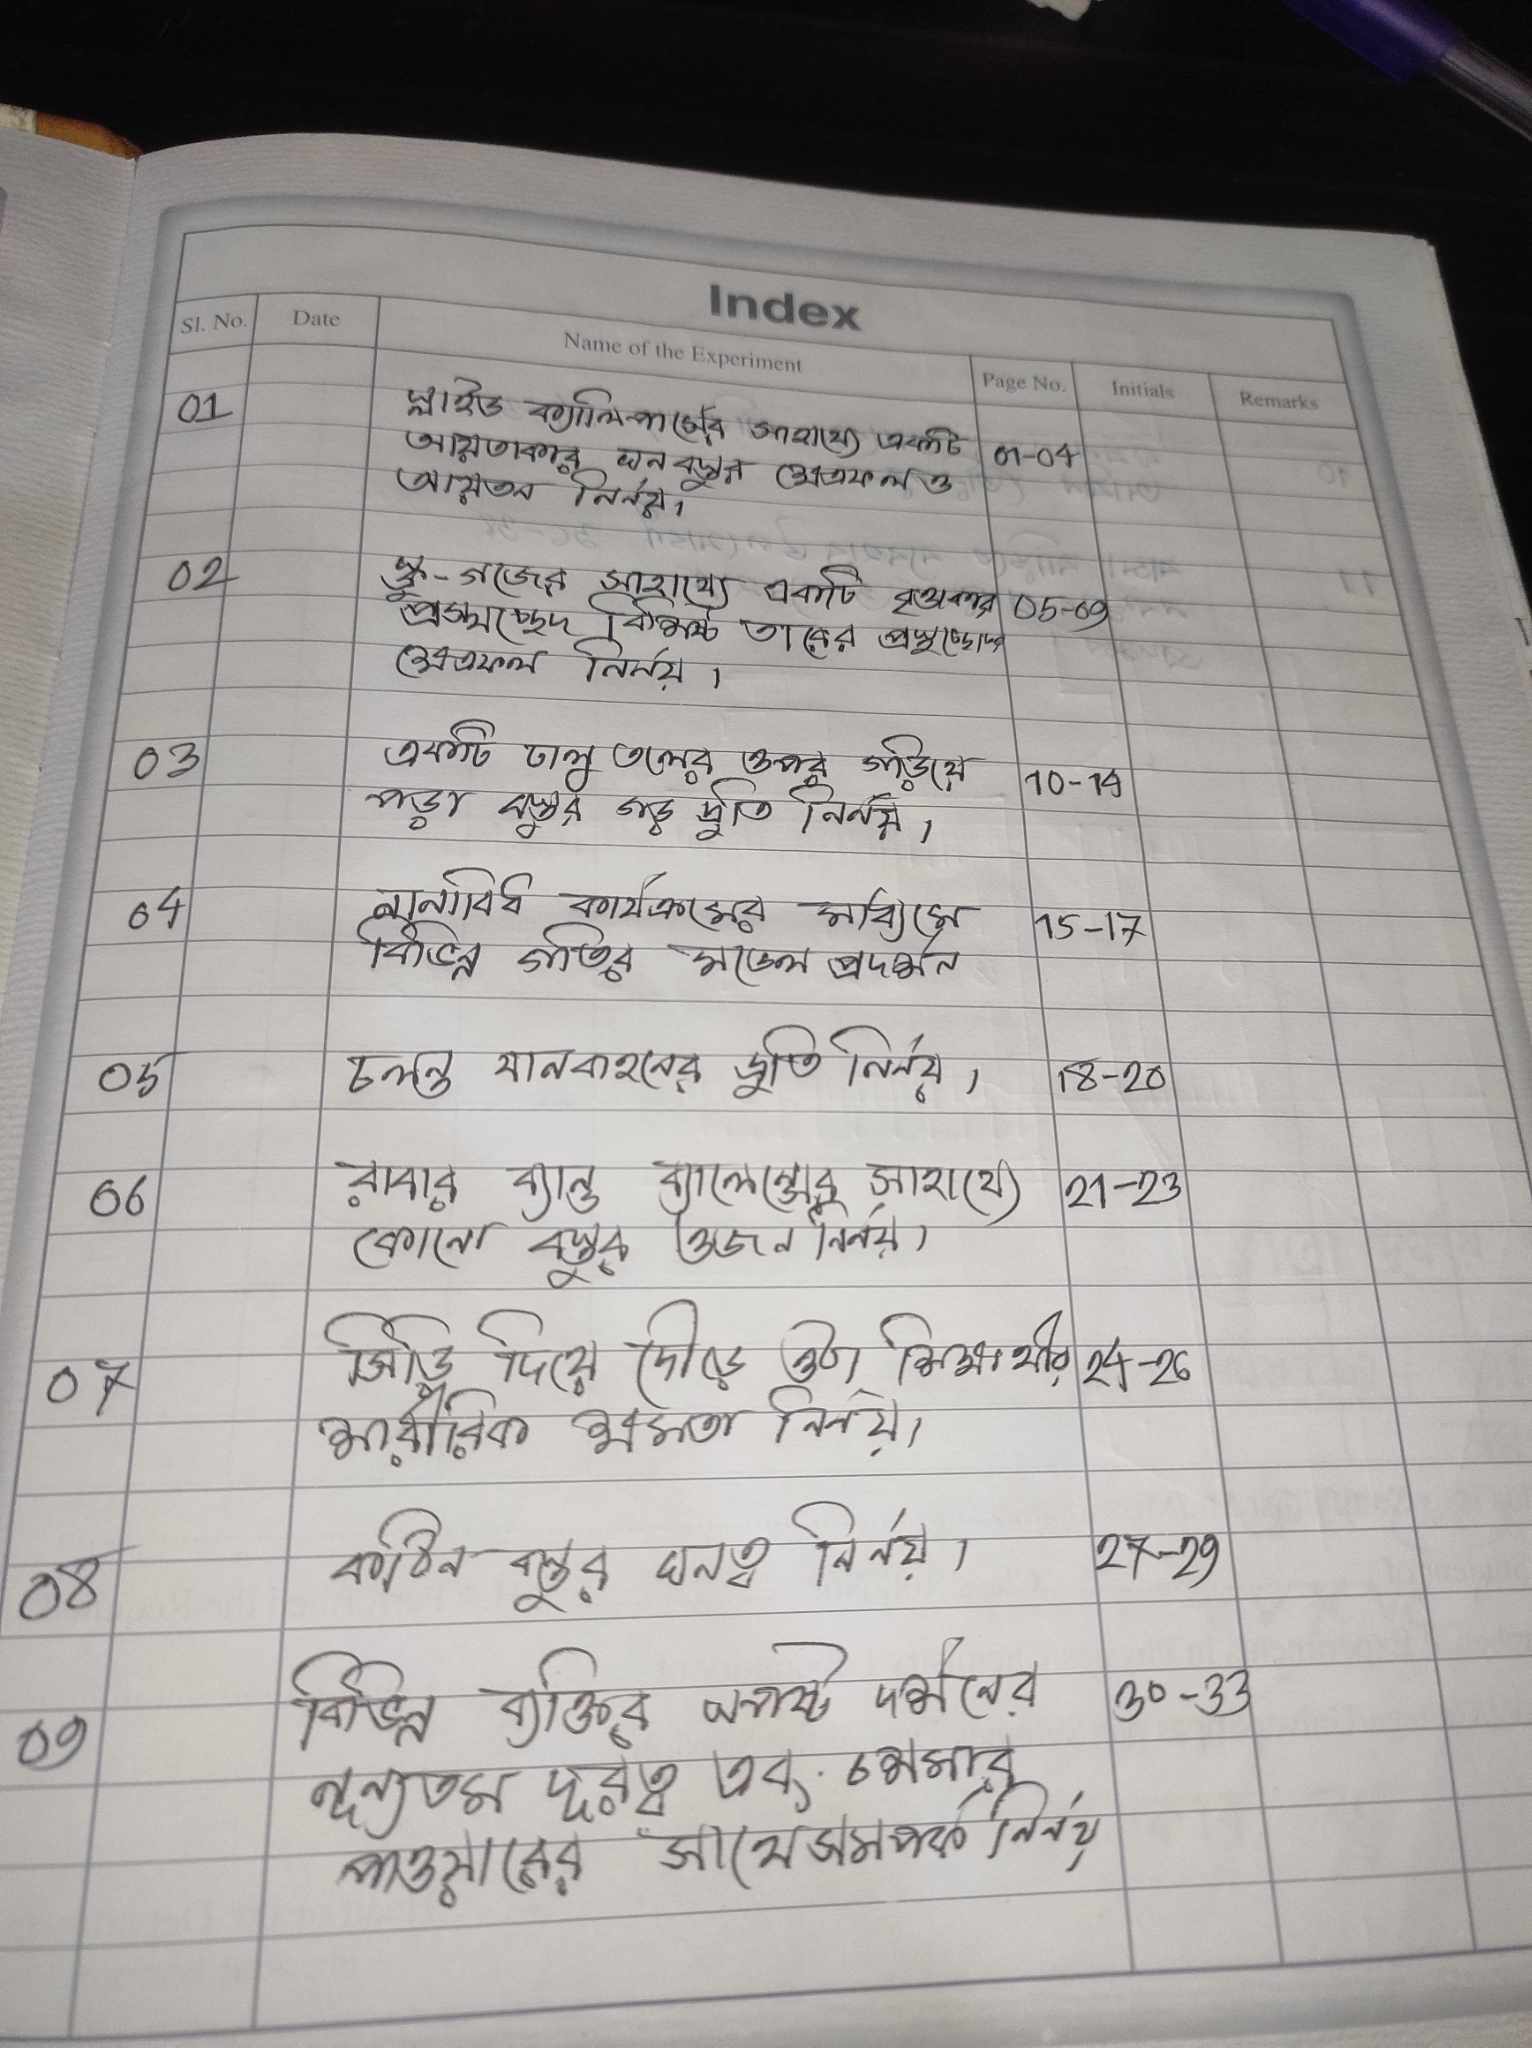 Index
Sl. No. Date Name of the Experiment Page No. Initials Remarks
01 স্লাইড ক্যালিপার্সের সাহায্যে একটি 01-04
আয়তাকার ঘনবস্তুর ক্ষেত্রফল ও
আয়তন নির্নয়।
02 স্ক্রু-গজের সাহায্যে একটি বৃত্তাকার 05-09
প্রস্থচ্ছেদ বিশিষ্ট তারের প্রস্থচ্ছেদের
ক্ষেত্রফল নির্নয়।
03 একটি ঢালু তলের ওপর গড়িয়ে 10-14
পড়া বস্তুর গড় দ্রুতি নির্নয়।
04 নানাবিধ কার্যক্রমের মাধ্যমে 15-17
বিভিন্ন গতির মডেল প্রদর্শন
05 চলন্ত যানবাহনের দ্রুতি নির্নয়। 18-20
06 রাবার ব্যান্ড ব্যালেন্সের সাহায্যে 21-23
কোনো বস্তুর ওজন নির্নয়।
07 সিঁড়ি দিয়ে দৌড়ে ওঠা শিক্ষার্থীর 24-26
শারীরিক ক্ষমতা নির্নয়।
08 কঠিন বস্তুর ঘনত্ব নির্নয়। 27-29
09 বিভিন্ন ব্যক্তির স্পষ্ট দর্শনের 30-33
ন্যূনতম দূরত্ব এবং চশমার
পাওয়ারের সাথে সম্পর্ক নির্নয়